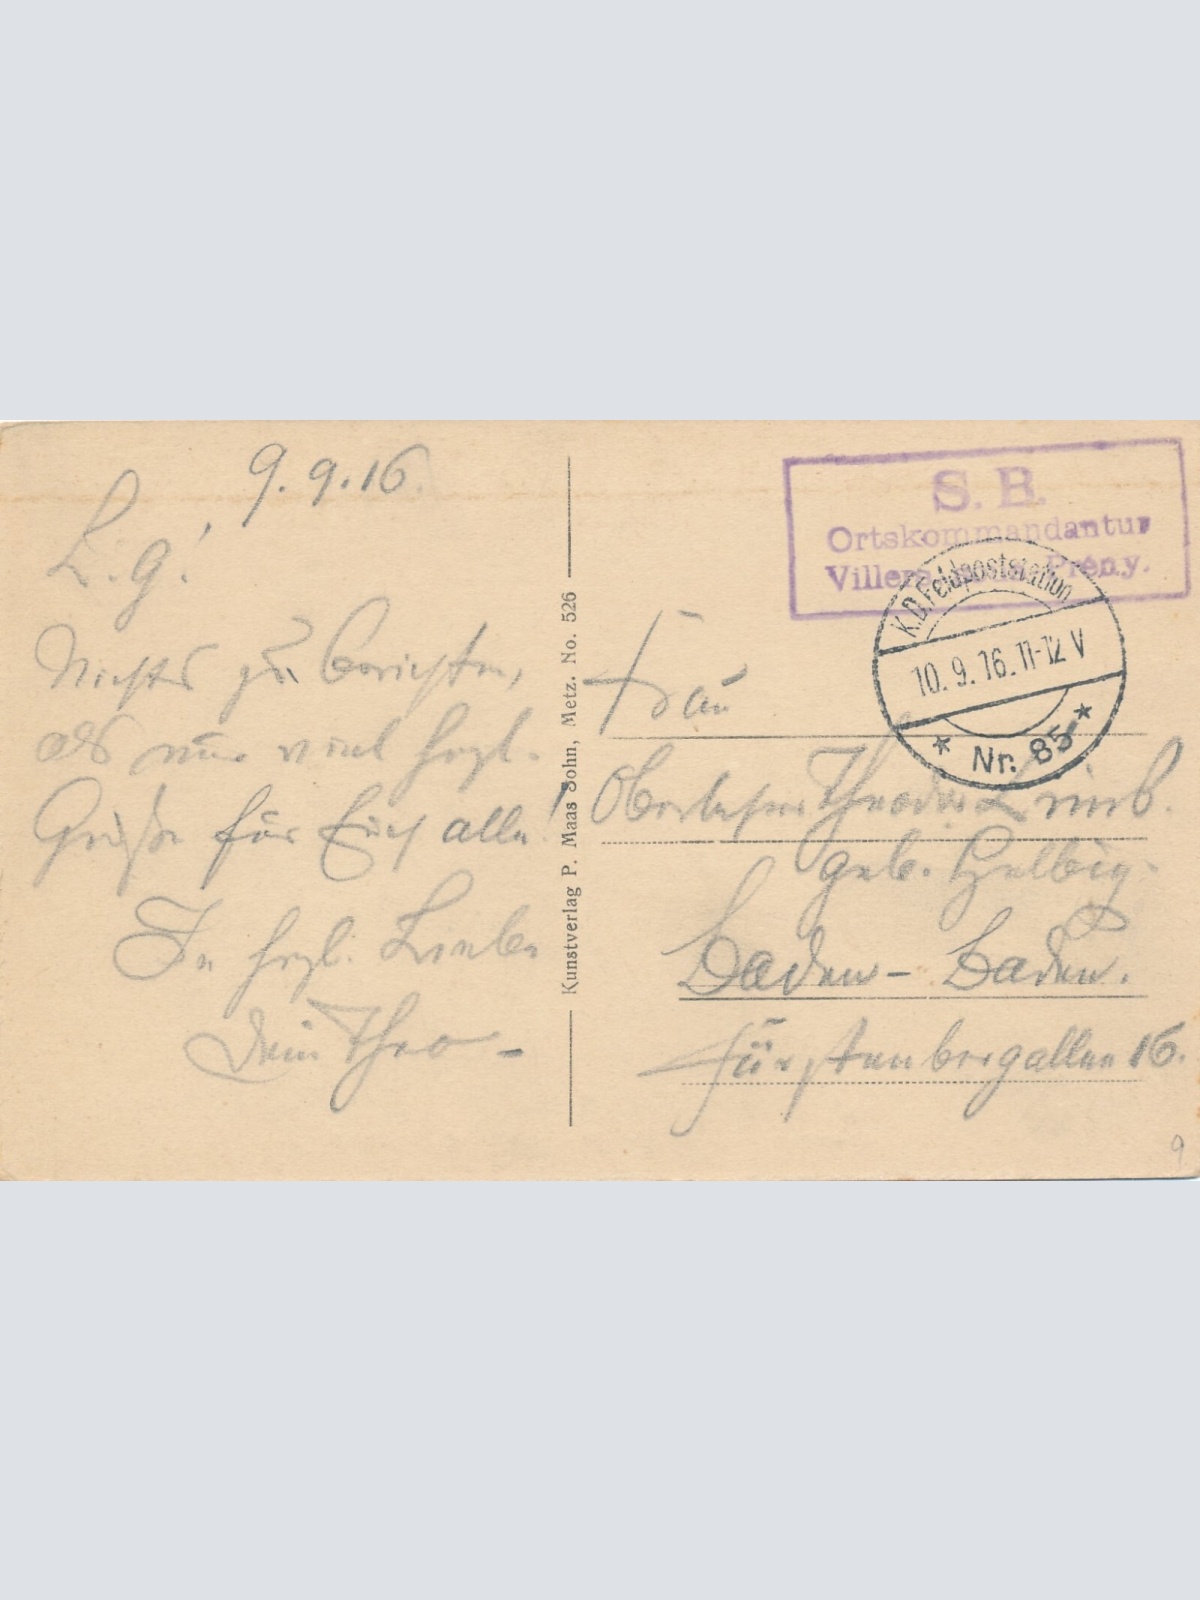 9.9.16.
L. G.!
Nichts zu berichten,
als nur viel herzl.
Grüße für Euch alle!
In herzl. Liebe
Dein Theo –
Kunstverlag P. Maas Sohn, Metz. No. 526
S. B.
Ortskommandantur
Villers Prény.
K.D. Feldpoststation
10.9.16. 11-12 V
* Nr. 85 *
Frau
Oberlehrer Theodor
geb. Helbig.
Baden-Baden.
Fürstenbergallee 16.
9